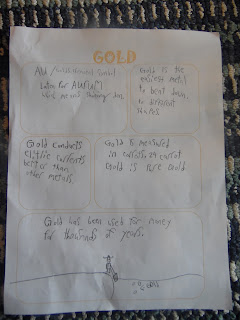 GOLD
AU
Latin for AURUM
which means
Gold is the
easiest metal
to beat down
to different
shapes.
Gold conducts
currents
better than
other metals.
Gold is measured
in carrots, 24 carrot
Gold is pure Gold.
Gold has been used for money
for thousands of years.